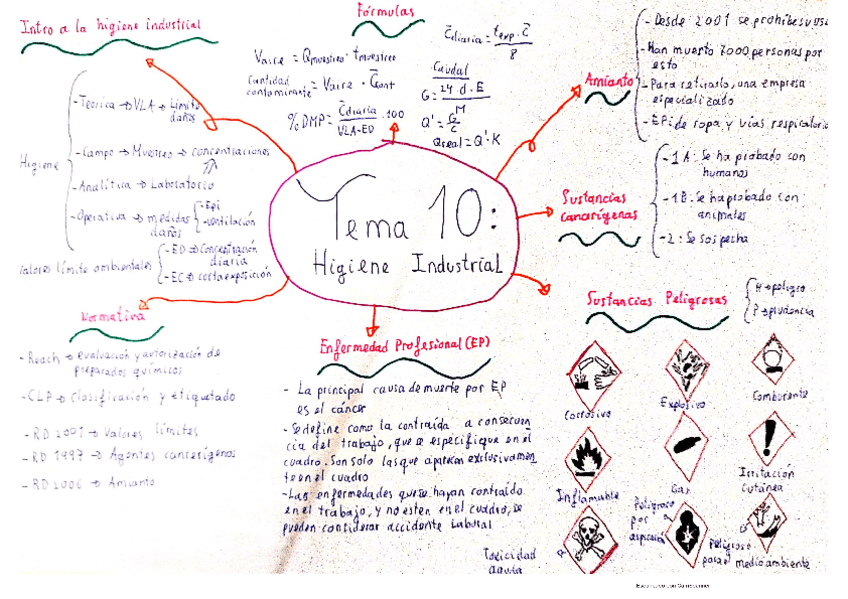 Tema 10:
Higiene Industrial
Intro a la higiene industrial
Higiene
- Teorica → VLA → Limite
daños
- Campo → Muestreo → concentraciones
- Analítica → Laboratorio
- Operativa → medidas
daños
- Epi
- ventilación
Valores límite ambientales
- ED → Concentración
diaria
- EC → corta exposición
Fórmulas
Vaire = Qmuestreo · tmuestreo
Cantidad
contaminante = Vaire · C̄cont
%DMP = C̄diaria / VLA-ED · 100
C̄diaria = texp. C̄ / 8
Caudal
G = 24 · d · E / M
Q' = G / C
Qreal = Q' · K
Amianto
- Desde 2001 se prohibe su uso
- Han muerto 7000 personas por
esto
- Para retirarlo, una empresa
especializado
- EPi de ropa y vías respiratoria
Sustancias
cancarígenas
- 1A: Se ha probado con
humanos
- 1B: Se ha probado con
animales
- 2: Se sospecha
Sustancias Peligrosas
H → peligro
P → prudencia
Corrosivo
Explosivo
Comburente
Inflamable
Gas
Irritación
Cutánea
Toxicidad
aguda
Peligroso
por
aspiración
Peligroso
para el medio ambiente
Enfermedad Profesional (EP)
- La principal causa de muerte por EP
es el cáncer
- Se define como la contraída a consecuen
cia del trabajo, que se especifique en el
cuadro. Son solo las que aparecen exclusivamen
te en el cuadro
- Las enfermedades que se hayan contraído
en el trabajo, y no esten en el cuadro, se
pueden considerar accidente laboral
Normativa
- Reach → evaluación y autorización de
preparados químicos
- CLP → Clasificación y etiquetado
- RD 2001 → Valores límites
- RD 1997 → Agentes cancerígenos
- RD 2006 → Amianto
Escaneado con CamScanner